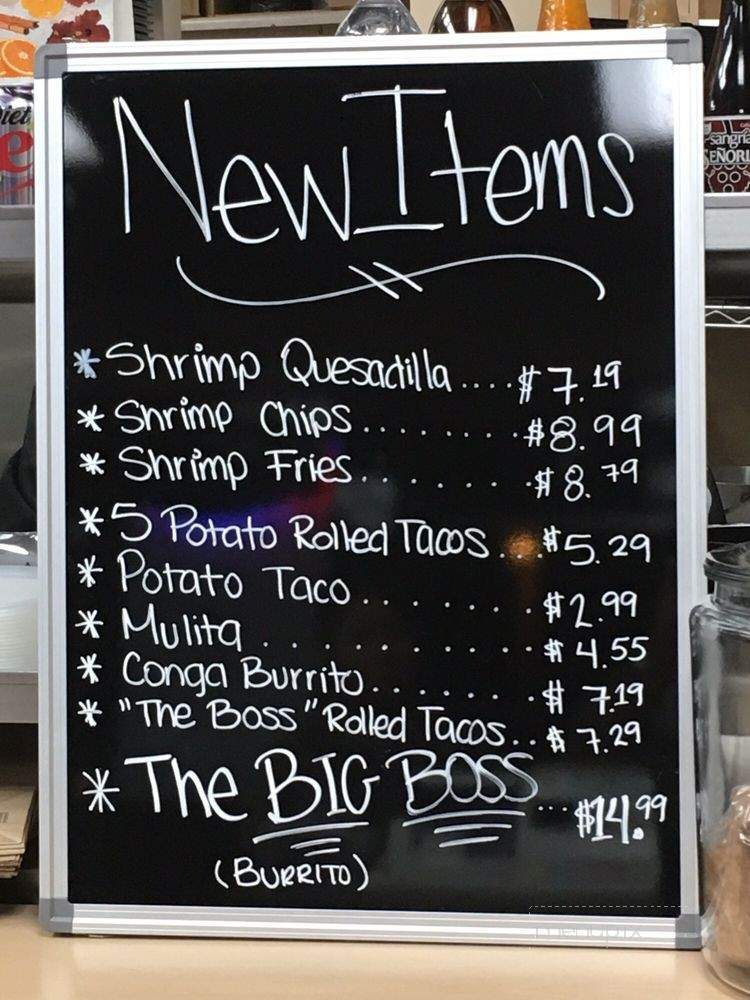 New Items
* Shrimp Quesadilla....$7.19
* Shrimp Chips........$8.99
* Shrimp Fries........$8.79
* 5 Potato Rolled Tacos...$5.29
* Potato Taco........$2.99
* Mulita...........$4.55
* Conga Burrito........$7.19
* "The Boss" Rolled Tacos..$7.29
* The BIG BOSS...$14.99
(BURRITO)
iet
sangria
SEÑORI
menupix